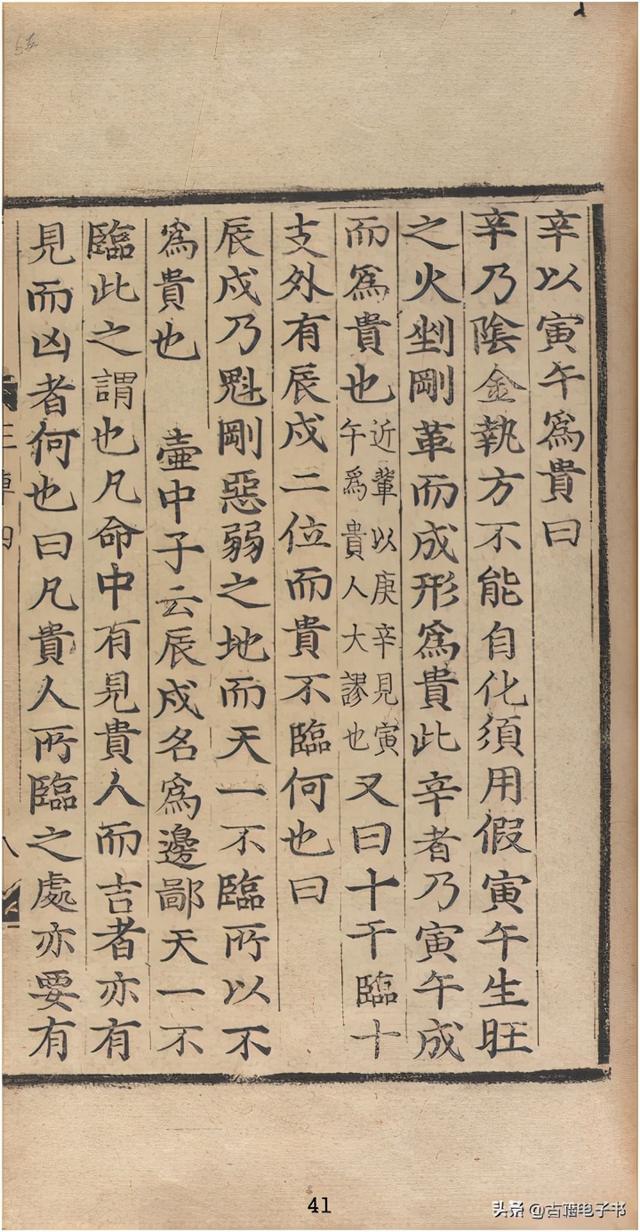 辛以寅午爲貴曰
辛乃陰金執方不能自化須用假寅午生旺
之火剉剛革而成形爲貴此辛者乃寅午成
而爲貴也近輩以庚辛見寅午爲貴人大謬也又曰十干臨十
支外有辰戍二位而貴不臨何也曰
辰戍乃魁剛惡弱之地而天一不臨所以不
爲貴也 壷中子云辰戍名爲邊鄙天一不
臨此之謂也凡命中有見貴人而吉者亦有
見而凶者何也曰凡貴人所臨之處亦要有
41
头条 @古籍电子书